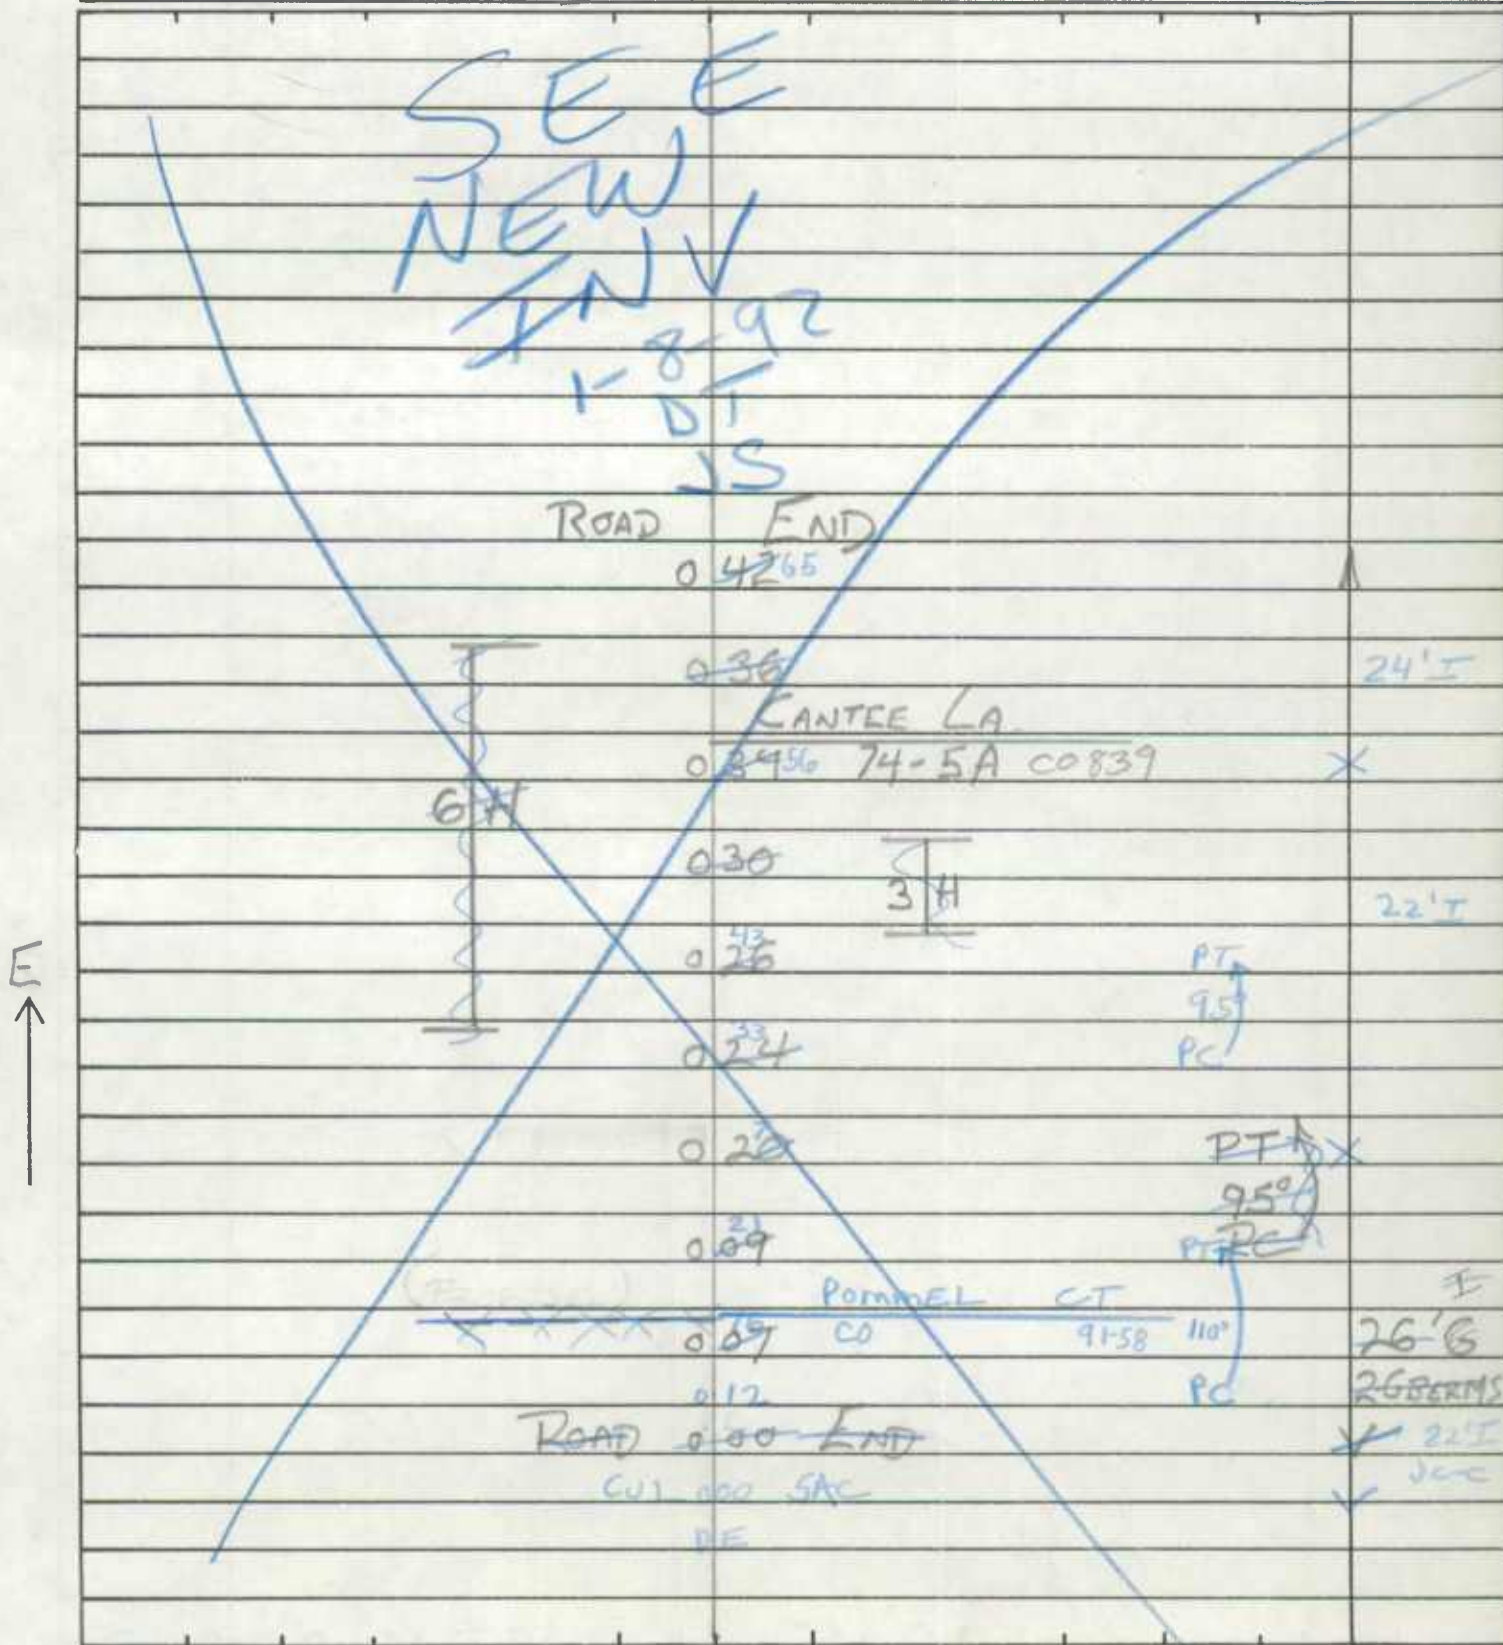 SEE
NEW
INV
1-8-92
DT
JS
ROAD END
0 42 65
0 36 24' I
CANTEE LA.
0 34 56 74-5A CO 839
6 H
0 30
3 H
22' I
43
0 26 PT
E 95°
33
0 24 PC
0 26 PT
95°
21
0 09 PT PC
POMMEL CT I
0 07 CO 91-58 110° 26'
0 12 PC 26 BERMS
ROAD 0 00 END 22' I
CUL 000 SAC